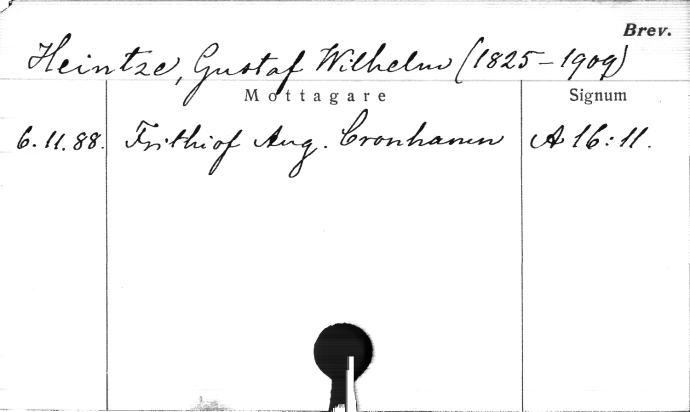 Brev.
Heintze, Gustaf Wilhelm (1825-1909)
Mottagare Signum
6.11.88. Frithiof Aug. Cronhamn A 16:11.